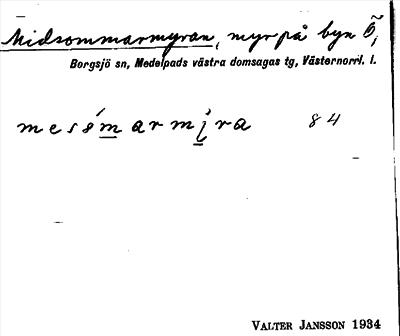 Midsommarmyran, myr på byn Ö,
Borgsjö sn, Medelpads västra domsagas tg, Västernorrl. l.
messmarmira 84
VALTER JANSSON 1934